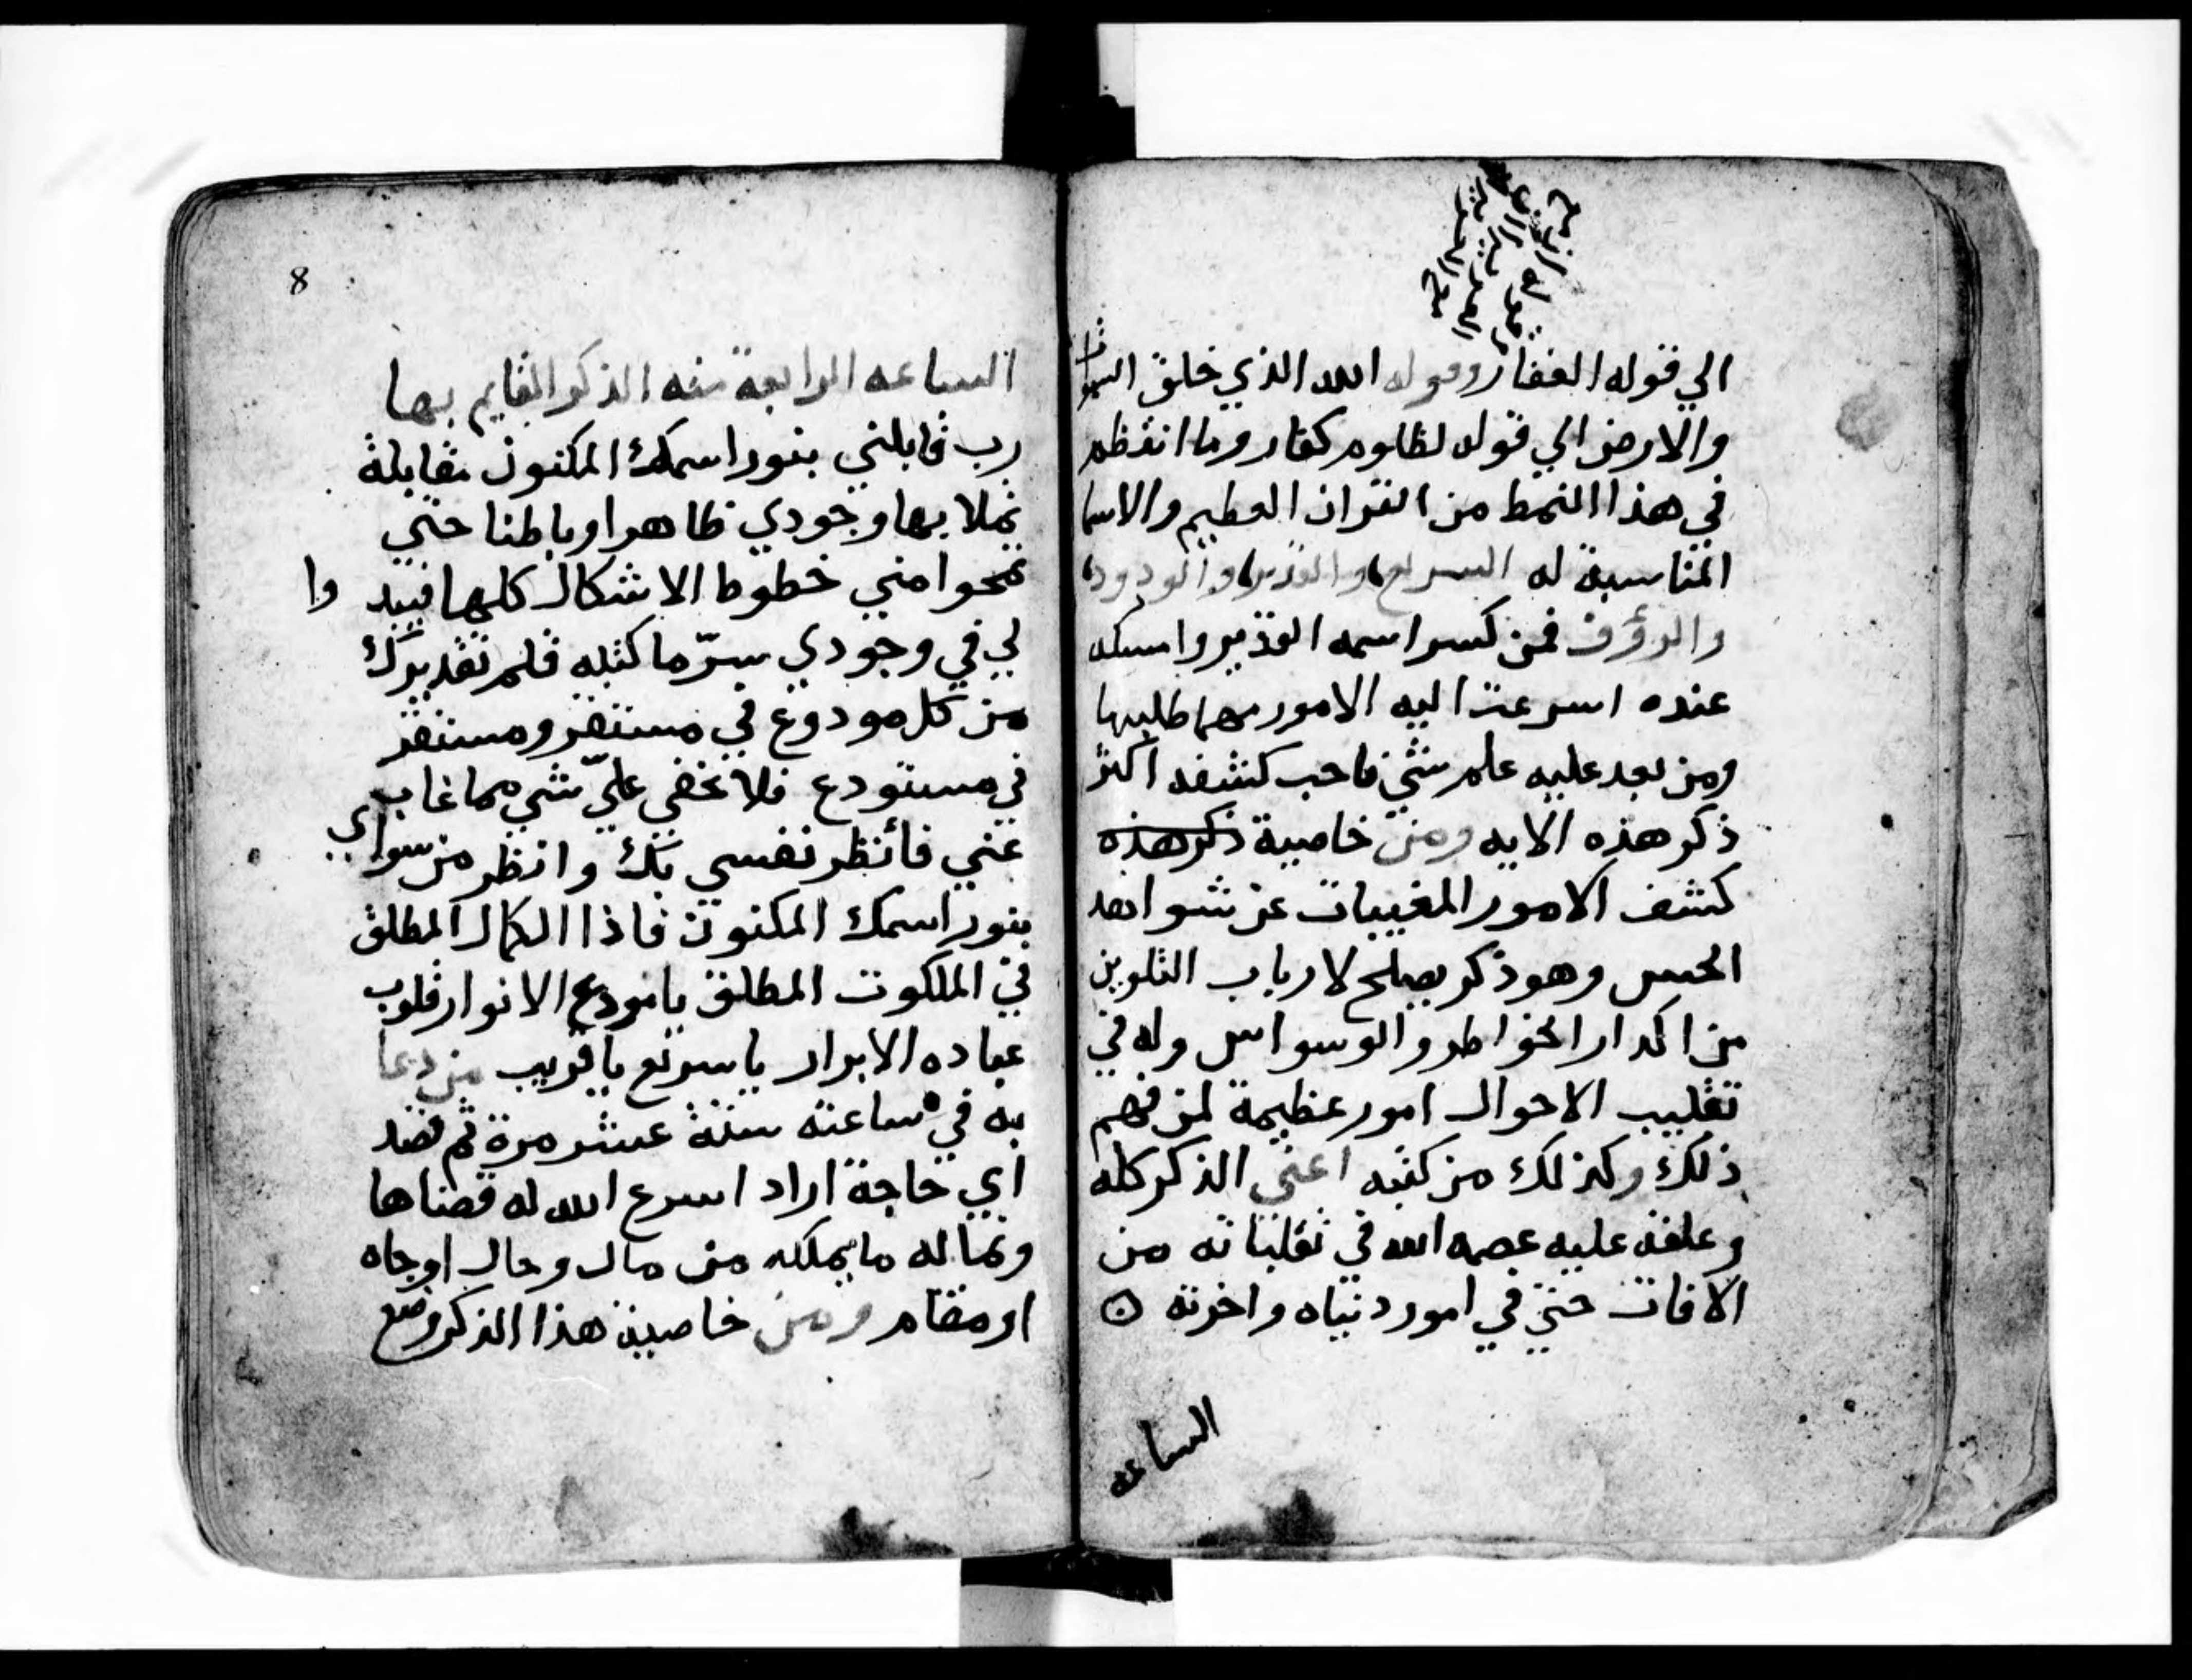 الي قوله الغفار وقوله الله الذي خلق السموات
والارض الي قوله لظلوم كفار وما انتظم
في هذا النمط من القران العظيم والاسما
المناسبة له السريع والقدير والودود
والرؤف فمن كسر اسمه القدير وامسكه
عنده اسرعت اليه الامور مهما طلبها
ومن بعد عليه علم شي فاحب كشفه اكثر
ذكر هذه الايه ومن خاصية ذكر هذه
كشف الامور المغيبات عن شواهد
الحس وهو ذكر يصلح لارباب التلوين
من اكدار الخواطر والوسواس وله في
تقليب الاحوال امور عظيمة لمن فهم
ذلك وكذلك من كتبه اعني الذكر كله
وعلقه عليه عصمه الله في تقلباته من
الافات حتي في امور دنياه واخرته
الساعه
8
الساعه الرابعة منه الذكر القايم بها
رب قابلني بنور اسمك المكنون مقابلة
تملا بها وجودي ظاهرا وباطنا حتي
تمحوا مني خطوط الاشكال كلها فيبد وا
لي في وجودي سرّ ما كتبه قلم تقديرك
من كل مودوع في مستقر ومستقر
في مستودع فلا يخفي عليّ شي مما غاب
عني فأنظر نفسي بك وانظر من سواي
بنور اسمك المكنون فاذا الكمال المطلق
في الملكوت المطلق يا مودع الانوار قلوب
عباده الابرار يا سريع يا قريب من دعا
به في ساعته ستة عشر مرة ثم قصد
اي حاجة اراد اسرع الله له قضاها
ونما له ما يملكه من مال وحال اوجاه
او مقام ومن خاصية هذا الذكر وضع